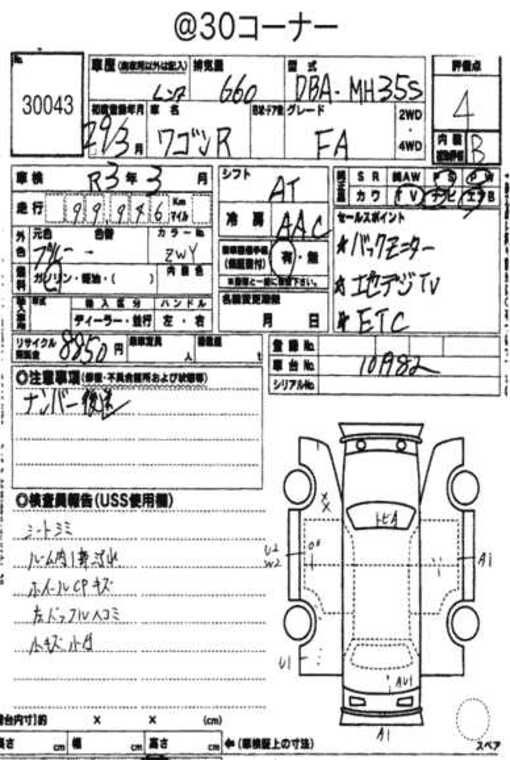 @30コーナー
No.
30043
車歴 (自家用以外は記入)
レンタ
排気量
660
型式
DBA-MH35S
評価点
4
初度登録年月
29/3月
車名
ワゴンR
ドア数
グレード
FA
2WD
・
4WD
内装
B
車検
R3年3月
シフト
AT
SR
純AW
PS
PW
カワ
TV
ナビ
エアB
走行
99946
Km
マイル
冷房
AAC
セールスポイント
★バックモニター
★地デジTV
★ETC
外色
元色
ブルー
色替
カラーNo.
ZWY
内装色
燃料
ガソリン・軽油・( )
有・無
(保証書付)
名義変更期限
月 日
輸入区分
ハンドル
ディーラー・並行
左・右
リサイクル
預託金
8850円
乗車定員
人
積載量
t
登録No.
車台No.
109982
シリアルNo.
◎注意事項
ナンバー後送
◎検査員報告(USS使用欄)
シートシミ
ホイールCPキズ
小キズ
トビA
U2
W2
A1
U1
AU1
A1
スペア
(荷台内寸)約 × × (cm)
長さ cm 幅 cm 高さ cm ←(車検証上の寸法)